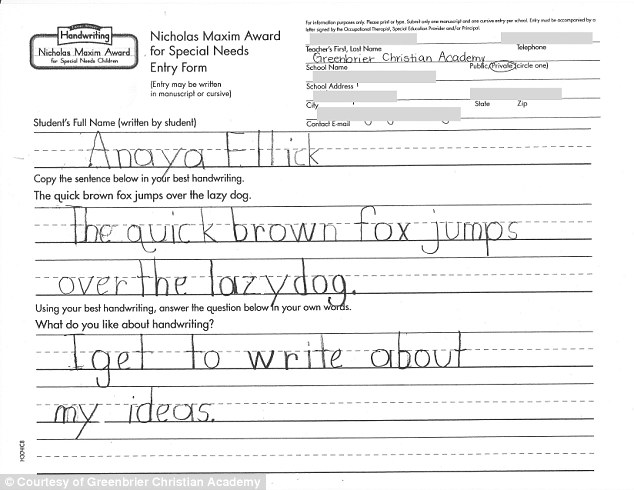 Handwriting
Nicholas Maxim Award
for Special Needs Children
Nicholas Maxim Award
for Special Needs
Entry Form
(Entry may be written
in manuscript or cursive)
for information purposes only. Please print or type. Submit only one manuscript and one cursive entry per school. Entry must be accompanied by a
letter signed by the Occupational Therapist, Special Education Provider and/or Principal.
Teacher's First, Last Name Telephone
Greenbrier Christian Academy
School Name Public/Private (circle one)
School Address
City State Zip
Contact E-mail
Student's Full Name (written by student)
Anaya Ellick
Copy the sentence below in your best handwriting.
The quick brown fox jumps over the lazy dog.
The quick brown fox jumps
over the lazy dog.
Using your best handwriting, answer the question below in your own words.
What do you like about handwriting?
I get to write about
my ideas.
© Courtesy of Greenbrier Christian Academy